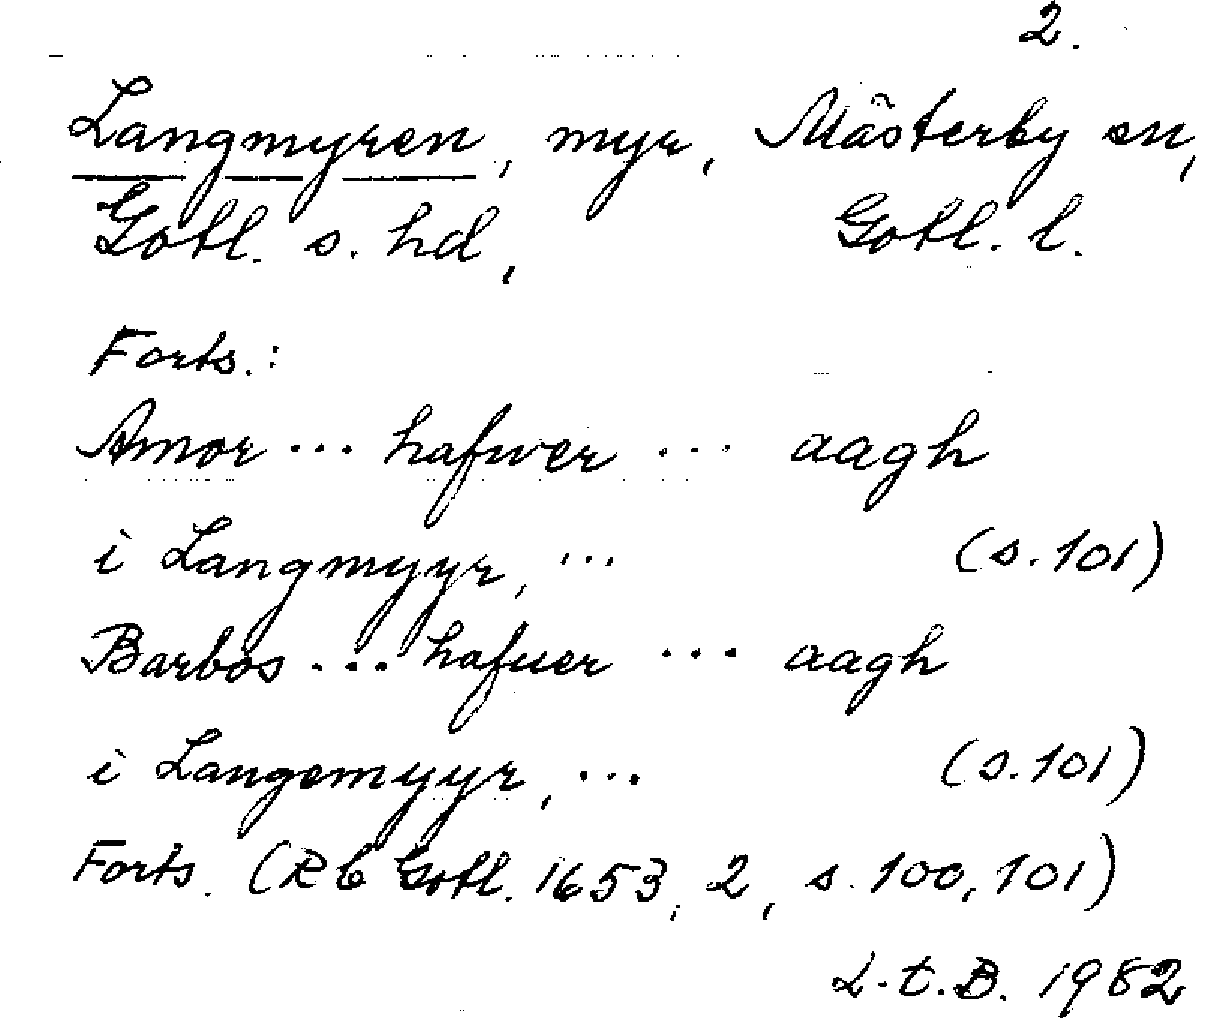 2.
Langmyren, myr, Mästerby sn,
Gotl. s. hd, Gotl. l.
Forts.:
Amor ... hafwer ... aagh
i Langmyyr, ... (s. 101)
Barbos ... hafuer ... aagh
i Langemyyr, ... (s. 101)
Forts. (Rb Gotl. 1653, 2, s. 100, 101)
L.t.B. 1982